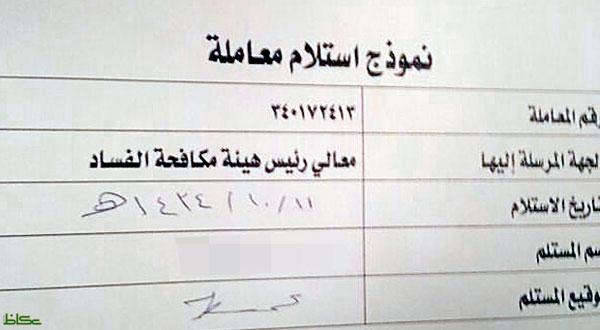 نموذج استلام معاملة
رقم المعاملة ٣٤٠١٧٢٤١٣
لجهة المرسلة إليها معالي رئيس هيئة مكافحة الفساد
تاريخ الاستلام ١٤٣٤/١٠/١١هـ
سم المستلم
وقيع المستلم
عكاظ